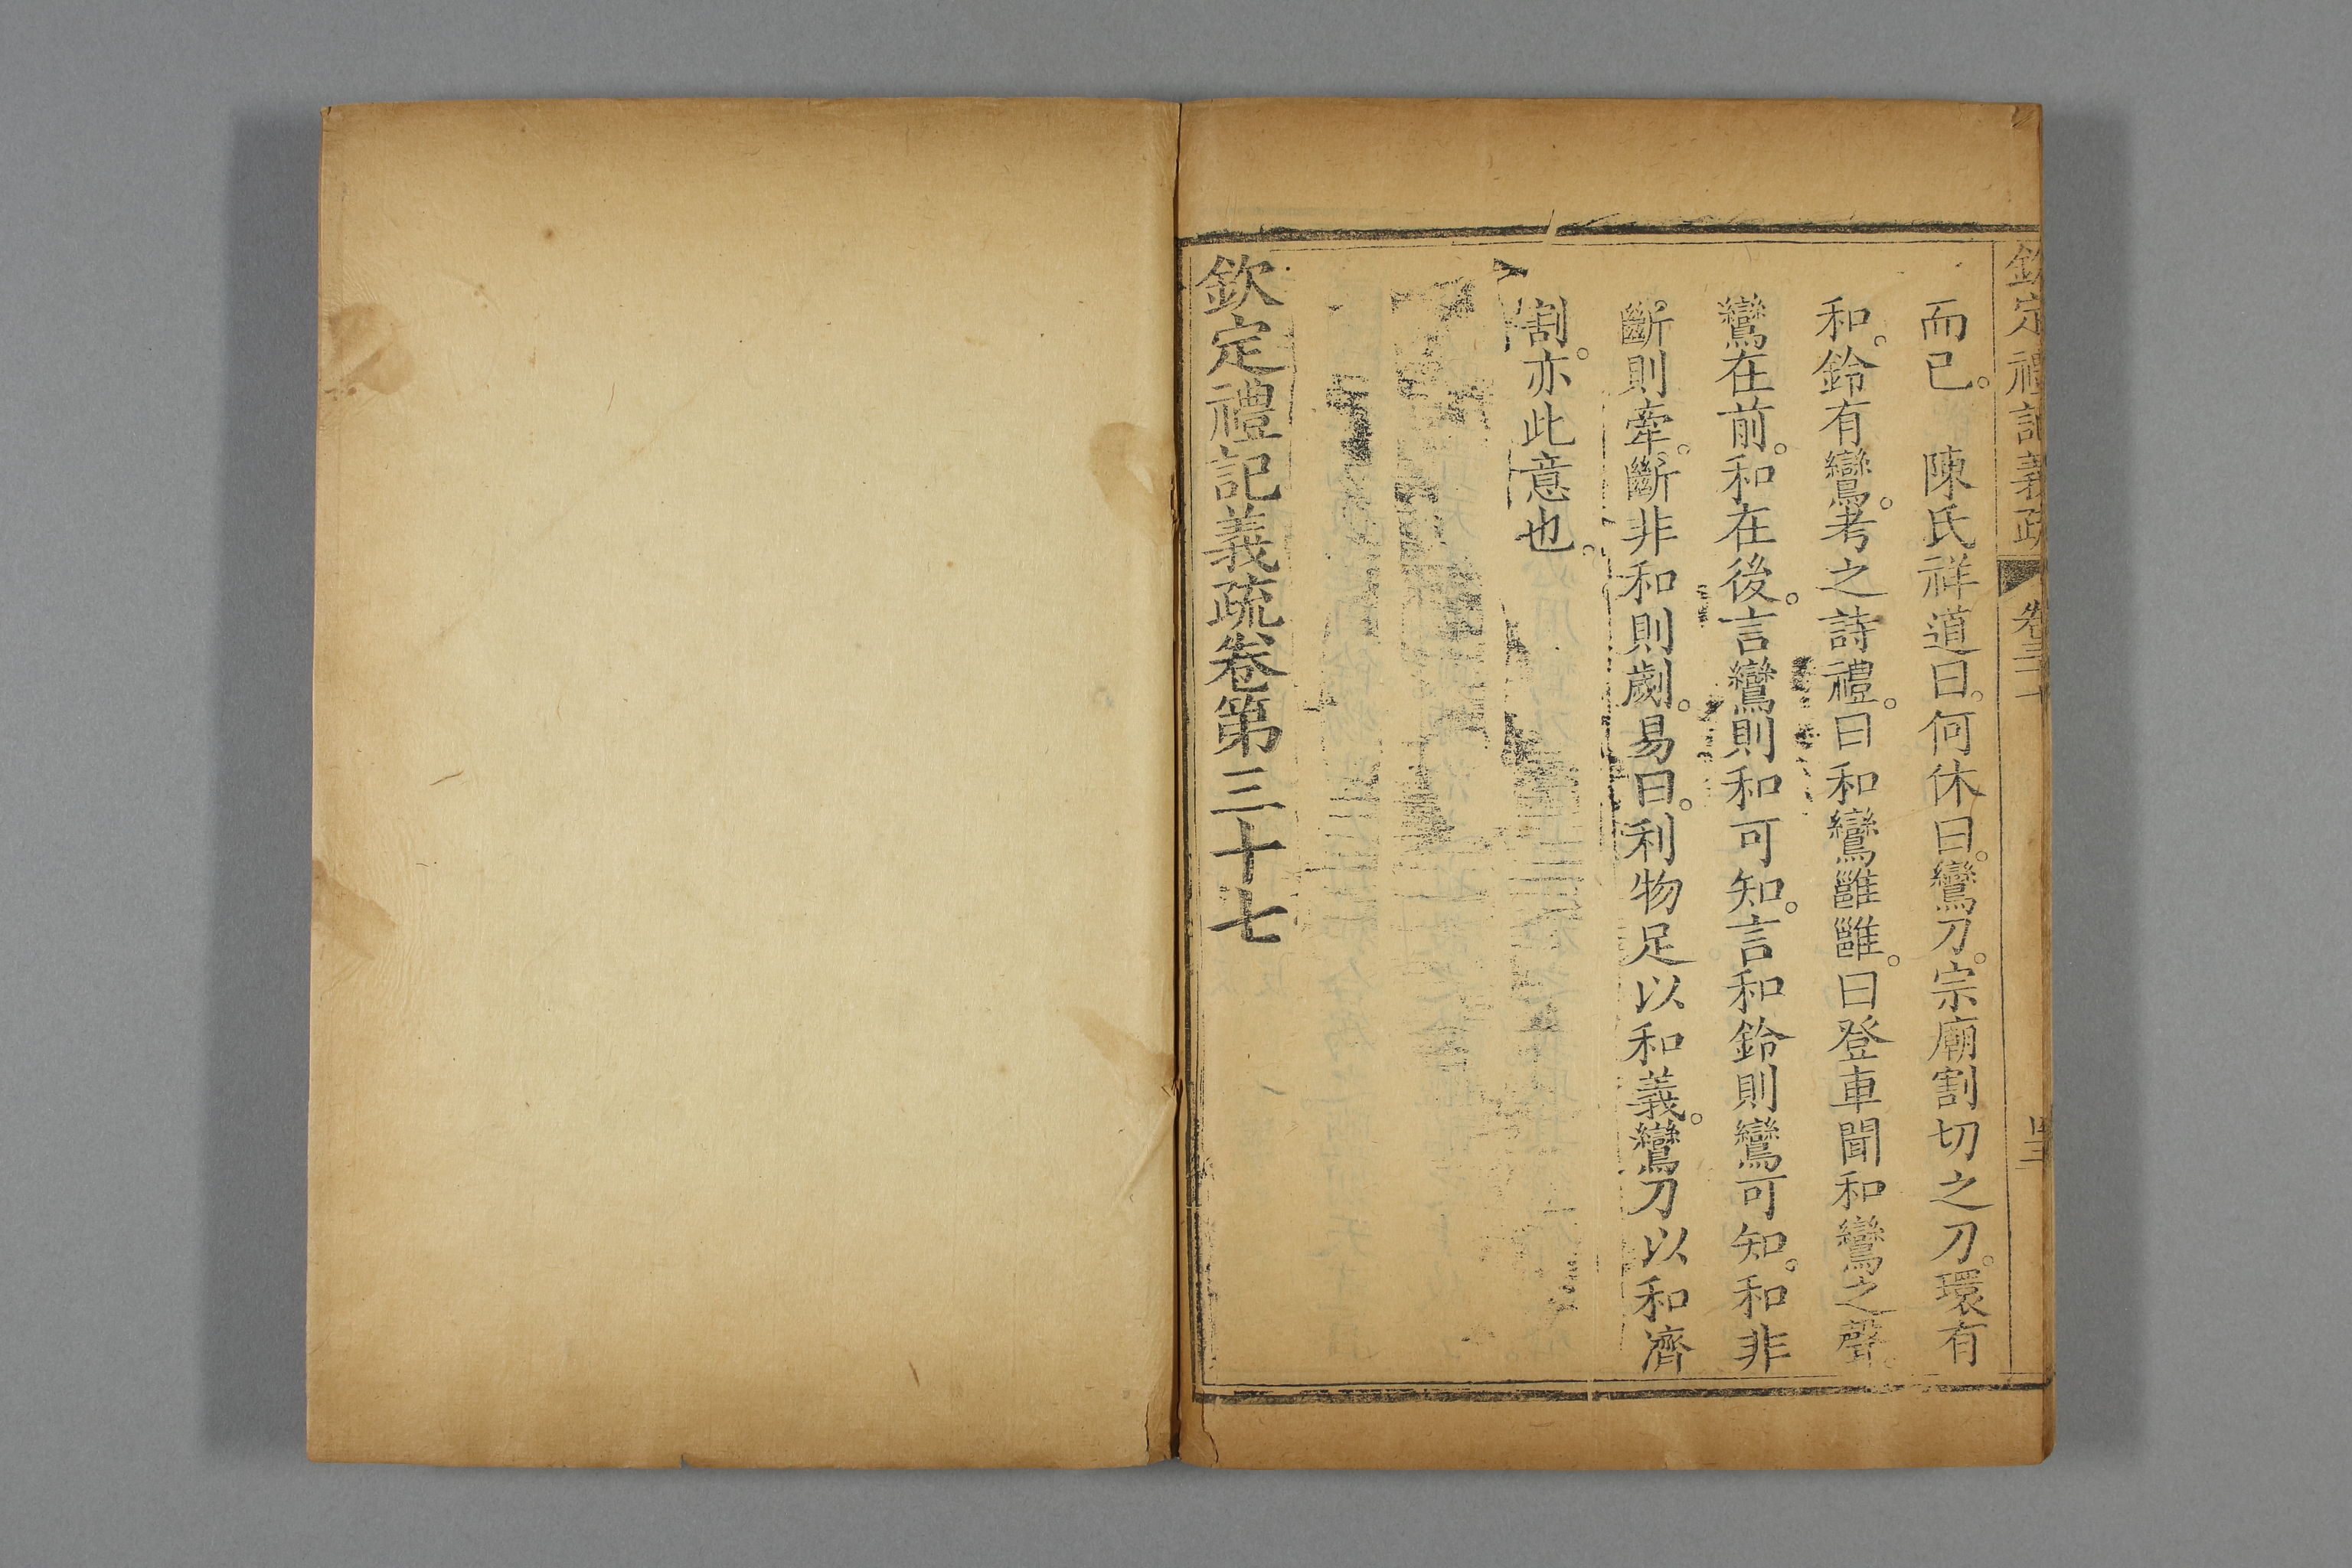 欽定禮記義疏 卷三十 四三
而已。 陳氏祥道曰。何休曰。鸞刀。宗廟割切之刀。環有
和。鈴有鸞。考之詩禮。曰和鸞雝雝。曰登車聞和鸞之聲。
鸞在前。和在後。言鸞則和可知。言和鈴則鸞可知。和非
斷則牽。斷非和則劌。易曰。利物足以和義。鸞刀以和濟
割。亦此意也。
欽定禮記義疏卷第三十七